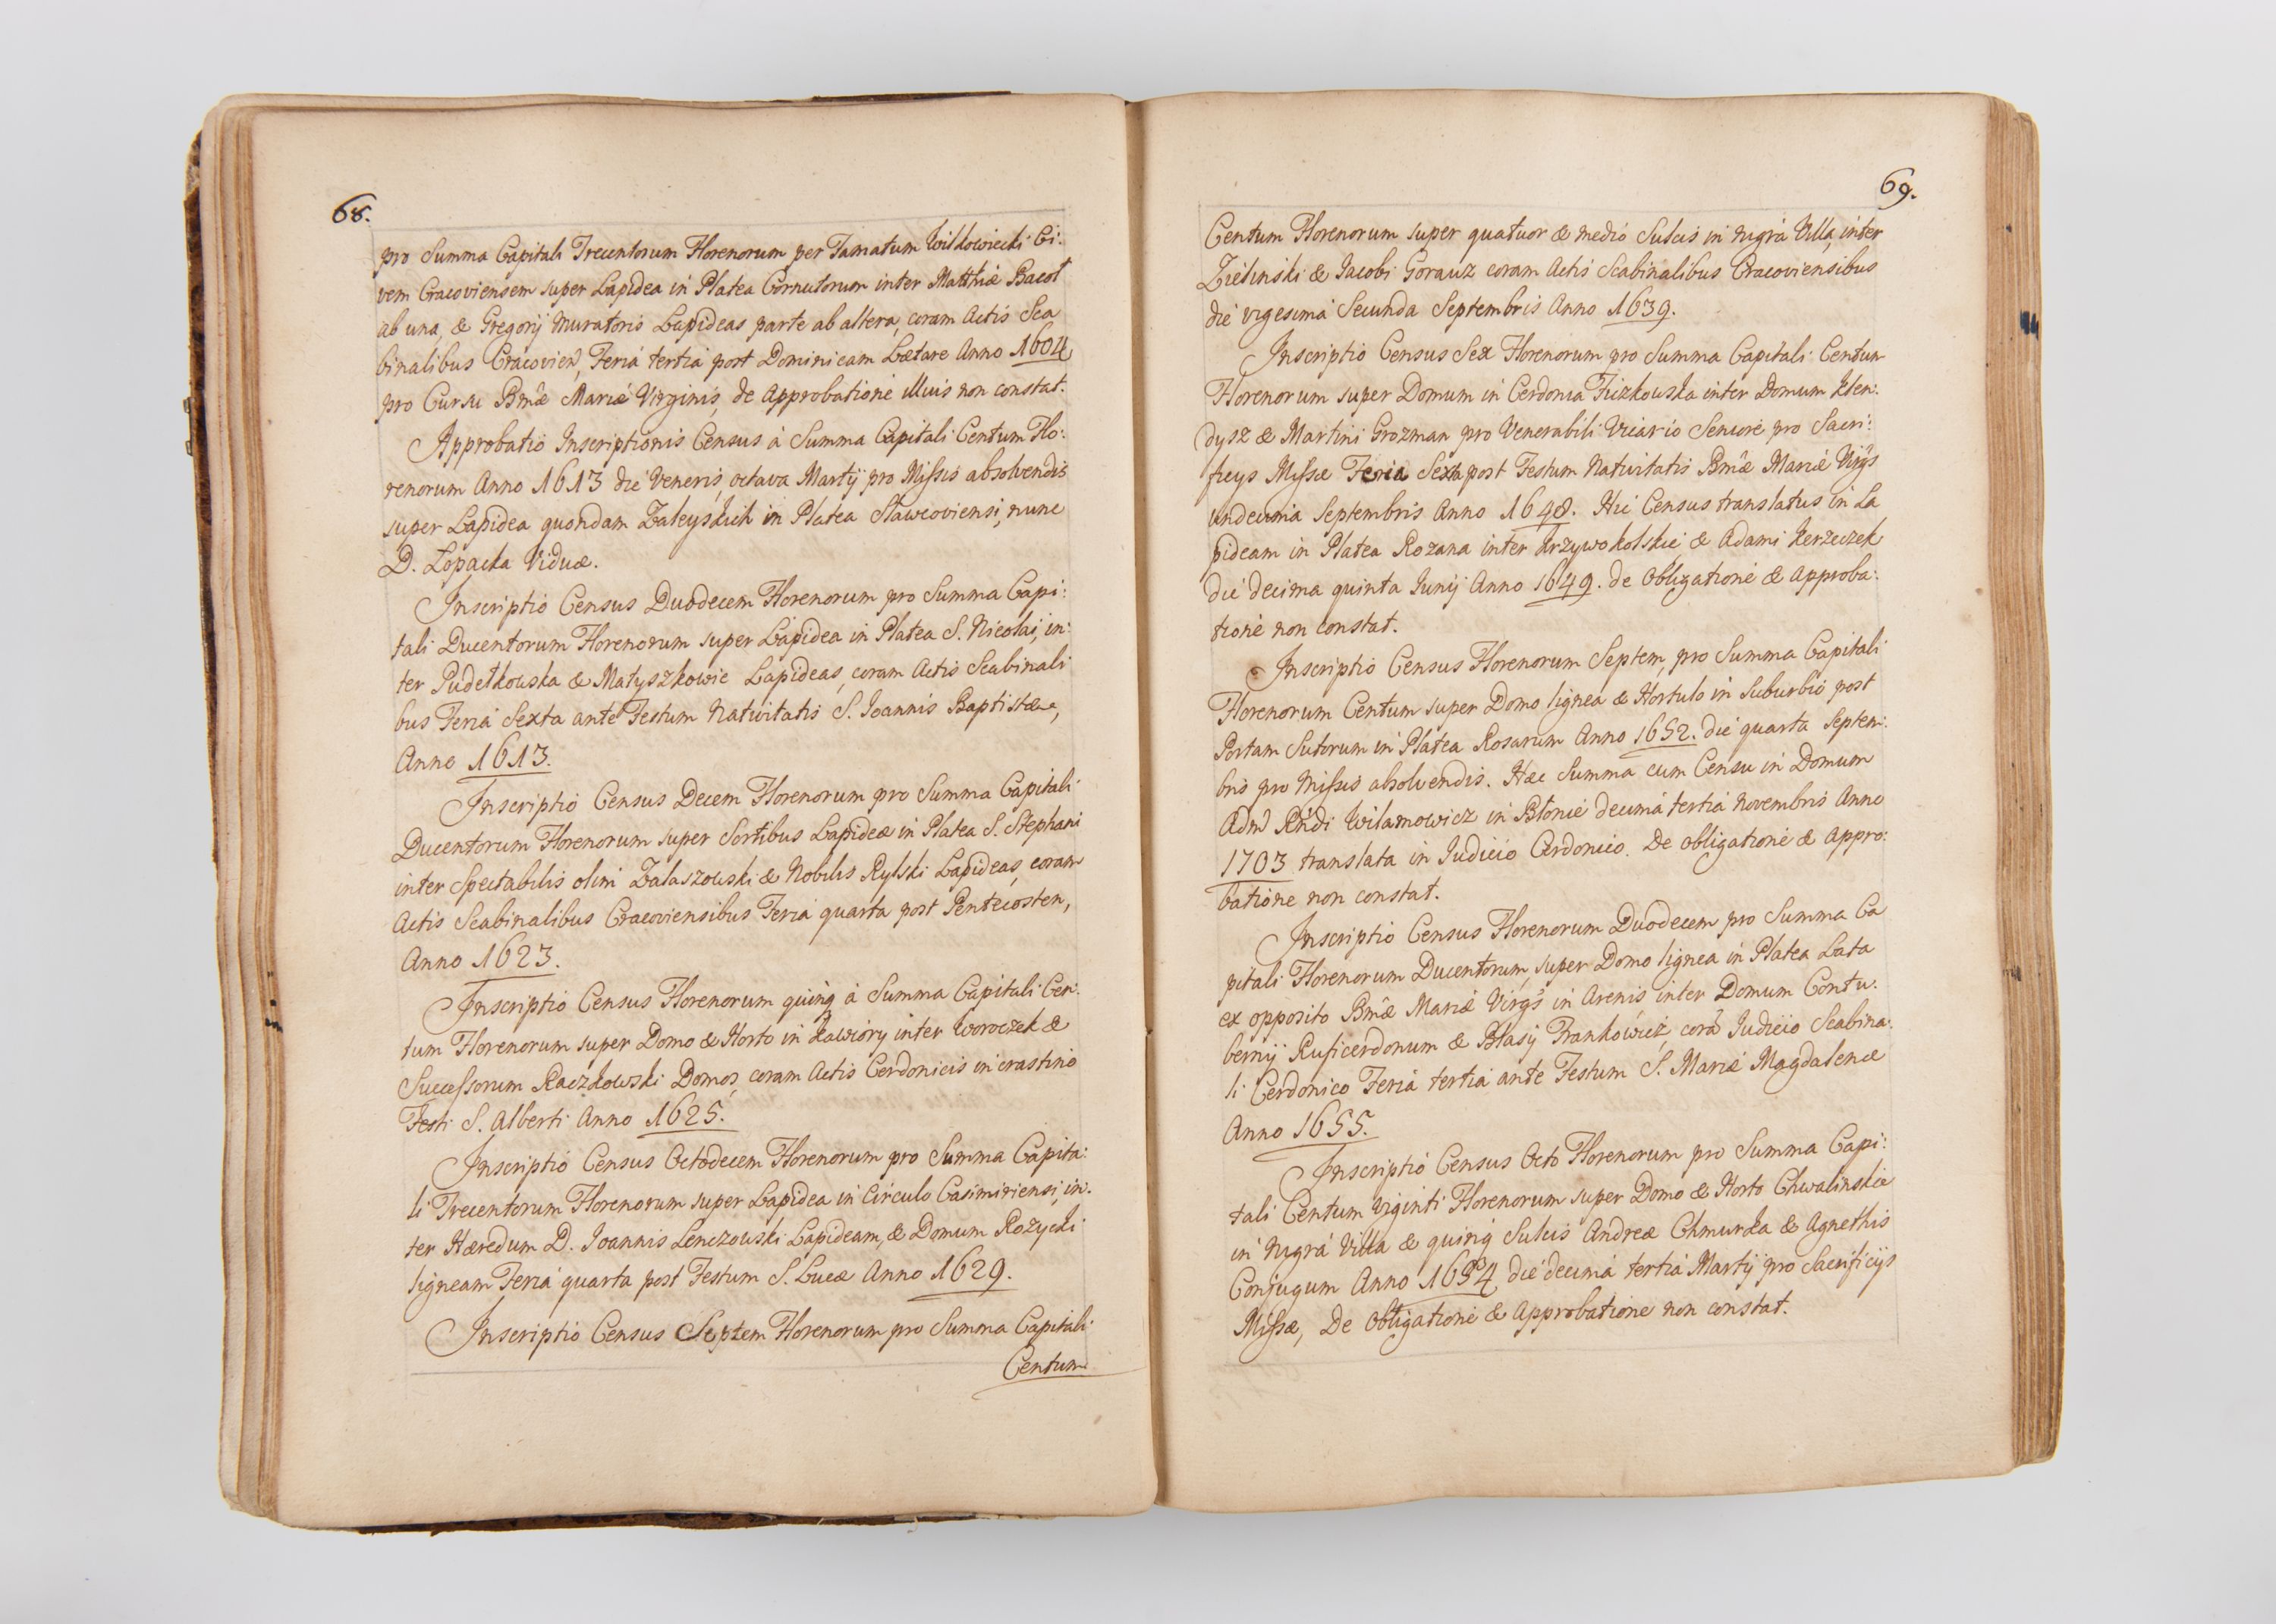 68.
pro Summa Capitali Trecentorum Florenorum per Famatum Witkowiecki Ci:
vem Cracoviensem super Lapidea in Platea Cornutorum inter Matthiæ Bacot
ab una, & Gregorij Muratoris Lapideas parte ab altera, coram Actis Sca
binalibus Cracovień, Feria tertia post Dominicam Lætare Anno 1604
pro Cursu Bmæ Mariæ Virginis, de Approbatione illius non constat.
Approbatio Inscriptionis Census à Summa Capitali Centum Flo:
renorum Anno 1613 die Veneris, octava Martij pro Missis absolvendis
super Lapidea quondam Zaleyskich in Platea Slawcoviensi, nunc
D. Lopacka Viduæ.
Inscriptio Census Duodecem Florenorum pro Summa Capi:
tali Ducentorum Florenorum super Lapidea in Platea S. Nicolai, in:
ter Pudełkowska & Matyszkowic Lapideas, coram Actis Scabinali
bus Feria Sexta ante Festum Nativitatis S. Ioannis Baptistæ,
Anno 1613.
Inscriptio Census Decem Florenorum pro Summa Capitali
Ducentorum Florenorum super Sortibus Lapideæ in Platea S. Stephani
inter Spectabilis olim Zalaszowski & Nobilis Rylski Lapideas, coram
Actis Scabinalibus Cracoviensibus Feria quarta post Pentecosten,
Anno 1623.
Inscriptio Census Florenorum quinq à Summa Capitali Cen:
tum Florenorum super Domo & Horto in Kawiory inter Woroczek &
Successorum Raczkowski Domos, coram Actis Cerdonicis in crastino
Festi S. Alberti Anno 1625.
Inscriptio Census Octodecem Florenorum pro Summa Capita:
li Trecentorum Florenorum super Lapidea in Circulo Casimiriensi, in:
ter Hæredum D. Ioannis Lenczowski Lapideam, & Domum Rozycki
ligneam Feria quarta post Festum S. Lucæ Anno 1629.
Inscriptio Census Septem Florenorum pro Summa Capitali
Centum
69.
Centum Florenorum super quatuor & medio Sulcis in nigra Villa, inter
Zieliński & Iacobi Gorauz coram Actis Scabinalibus Cracoviensibus
die vigesima Secunda Septembris Anno 1639.
Inscriptio Census Sex Florenorum pro Summa Capitali Centum
Florenorum super Domum in Cerdonia Fuzkowska inter Domum Klen:
dysz & Martini Grozman pro Venerabili Vicario Seniore pro Sacri:
ficys Missæ Feria Sexta post Festum Nativitatis Bmæ Mariæ Virgs
undecima Septembris Anno 1648. Hic Census translatus in La
pideam in Platea Rozana inter Krzywokolskie & Adami Kerzeczek
die decima quinta Iunij Anno 1649. de Obligatione & Approba:
tione non constat.
Inscriptio Census Florenorum Septem, pro Summa Capitali
Florenorum Centum super Domo lignea & Hortulo in Suburbio post
Portam Sutorum in Platea Rosarum Anno 1652. die quarta Septem:
bris pro Missis absolvendis. Hæc Summa cum Censu in Domum
Adm Rńdi Wilamowicz in Błonie decima tertia Novembris Anno
1703 translata in Iudicio Cerdonico. De obligatione & Appro:
batione non constat.
Inscriptio Census Florenorum Duodecem pro Summa Ca
pitali Florenorum Ducentorum, super Domo lignea in Platea Lata
ex opposito Bmæ Mariæ Virgs in Arenis inter Domum Contu:
bernij Ruficerdonum & Błasij Frankowicz, corã Iudicio Scabina:
li Cerdonico Feria tertia ante Festum S. Mariæ Magdalenæ
Anno 1655.
Inscriptio Census Octo Florenorum pro Summa Capi:
tali Centum Viginti Florenorum super Domo & Horto Chwalinskie
in Nigra Villa & quinq Sulcis Andreæ Chmurka & Agnethis
Conjugum Anno 1654 die decima tertia Martij pro Sacrificijs
Missæ, De Obligatione & Approbatione non constat.